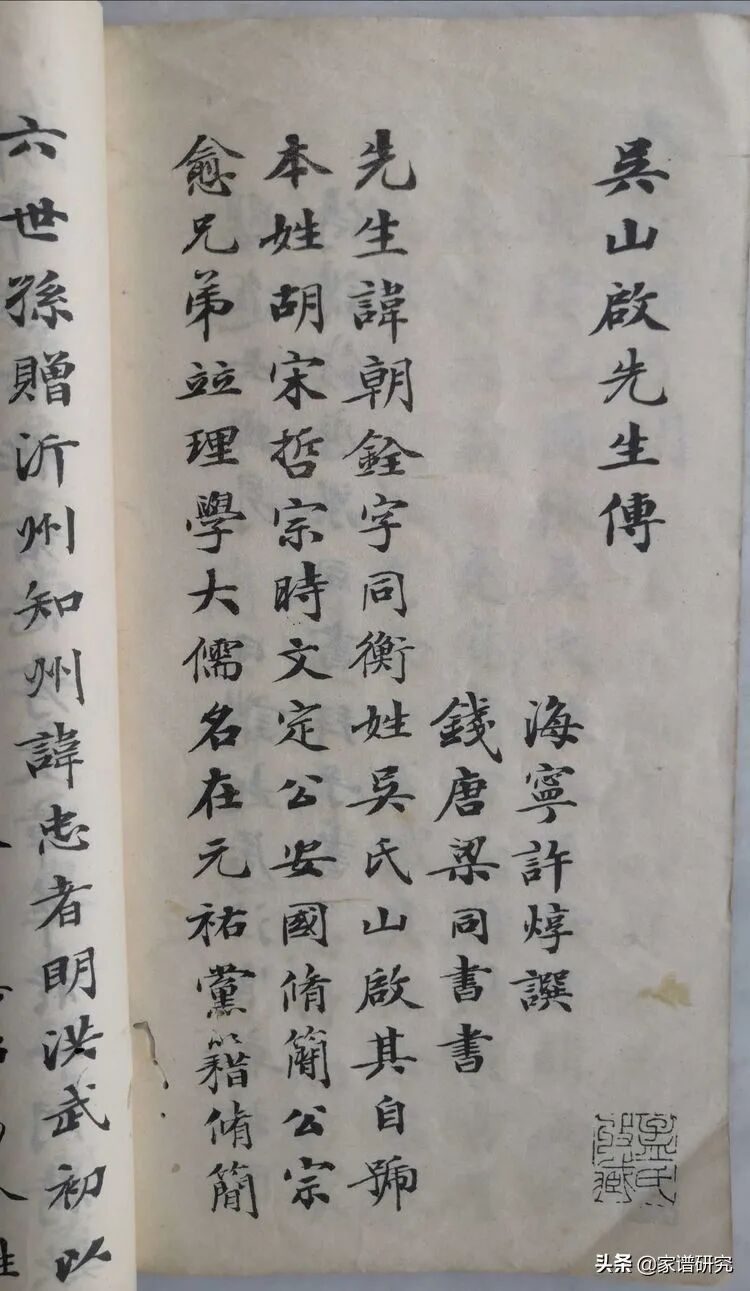 吳山啟先生傳
海寧許焞譔
錢唐梁同書書
先生諱朝銓字同衡姓吳氏山啟其自號
本姓胡宋哲宗時文定公安國脩簡公宗
愈兄弟竝理學大儒名在元祐黨籍脩簡
六世孫贈沂州知州諱忠者明洪武初以
頭条 @家谱研究